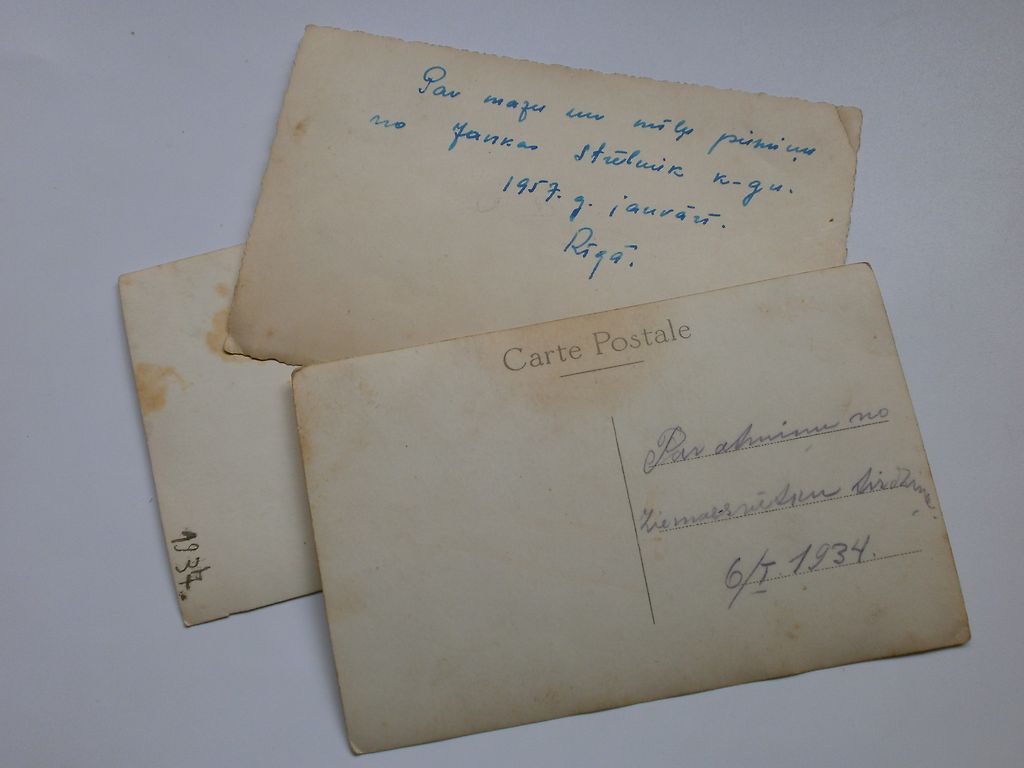 Par mazu un mīļu piemiņu
no Jankas Strēlnik k-gu.
1957. g. janvārī.
Rīgā.
Carte Postale
Par atmiņu no
Ziemassvētku
6/I. 1934.
1937.